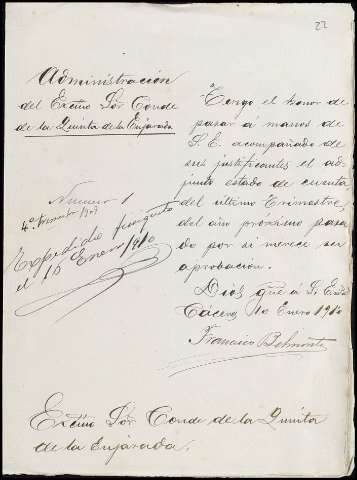 22
Administración
del Excmo Sor Conde
de la Quinta de la Enjarada
Numero 1
4º trimestre 1909
Expedido finiquito
el 10 Enero 1910
Tengo el honor de
pasar á manos de
S. E. acompañado de
sus justificantes el ad-
junto estado de cuenta
del ultimo trimestre
del año próximo pasa-
do por si merece ser
aprobación.
Dios gue á S. E.
Cáceres 10 Enero 1910
Francisco Belmonte
Excmo Sor Conde de la Quinta
de la Enjarada.